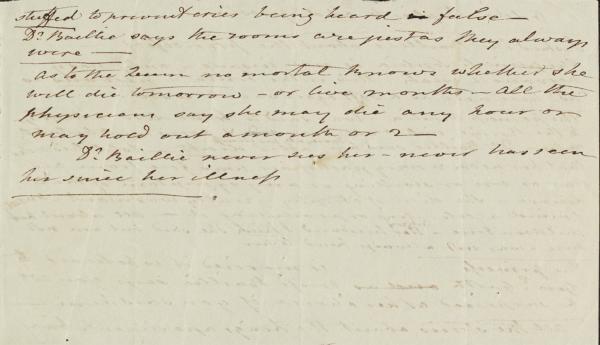 stuffed to prevent cries being heard is false—
Dr. Baillie says the rooms are just as they always
were —
as to the Queen no mortal knows whether she
will die tomorrow — or live months — all the
physicians say she may die any hour or
may hold out a month or 2 —
Dr. Baillie never sees her — never has seen
her since her illness